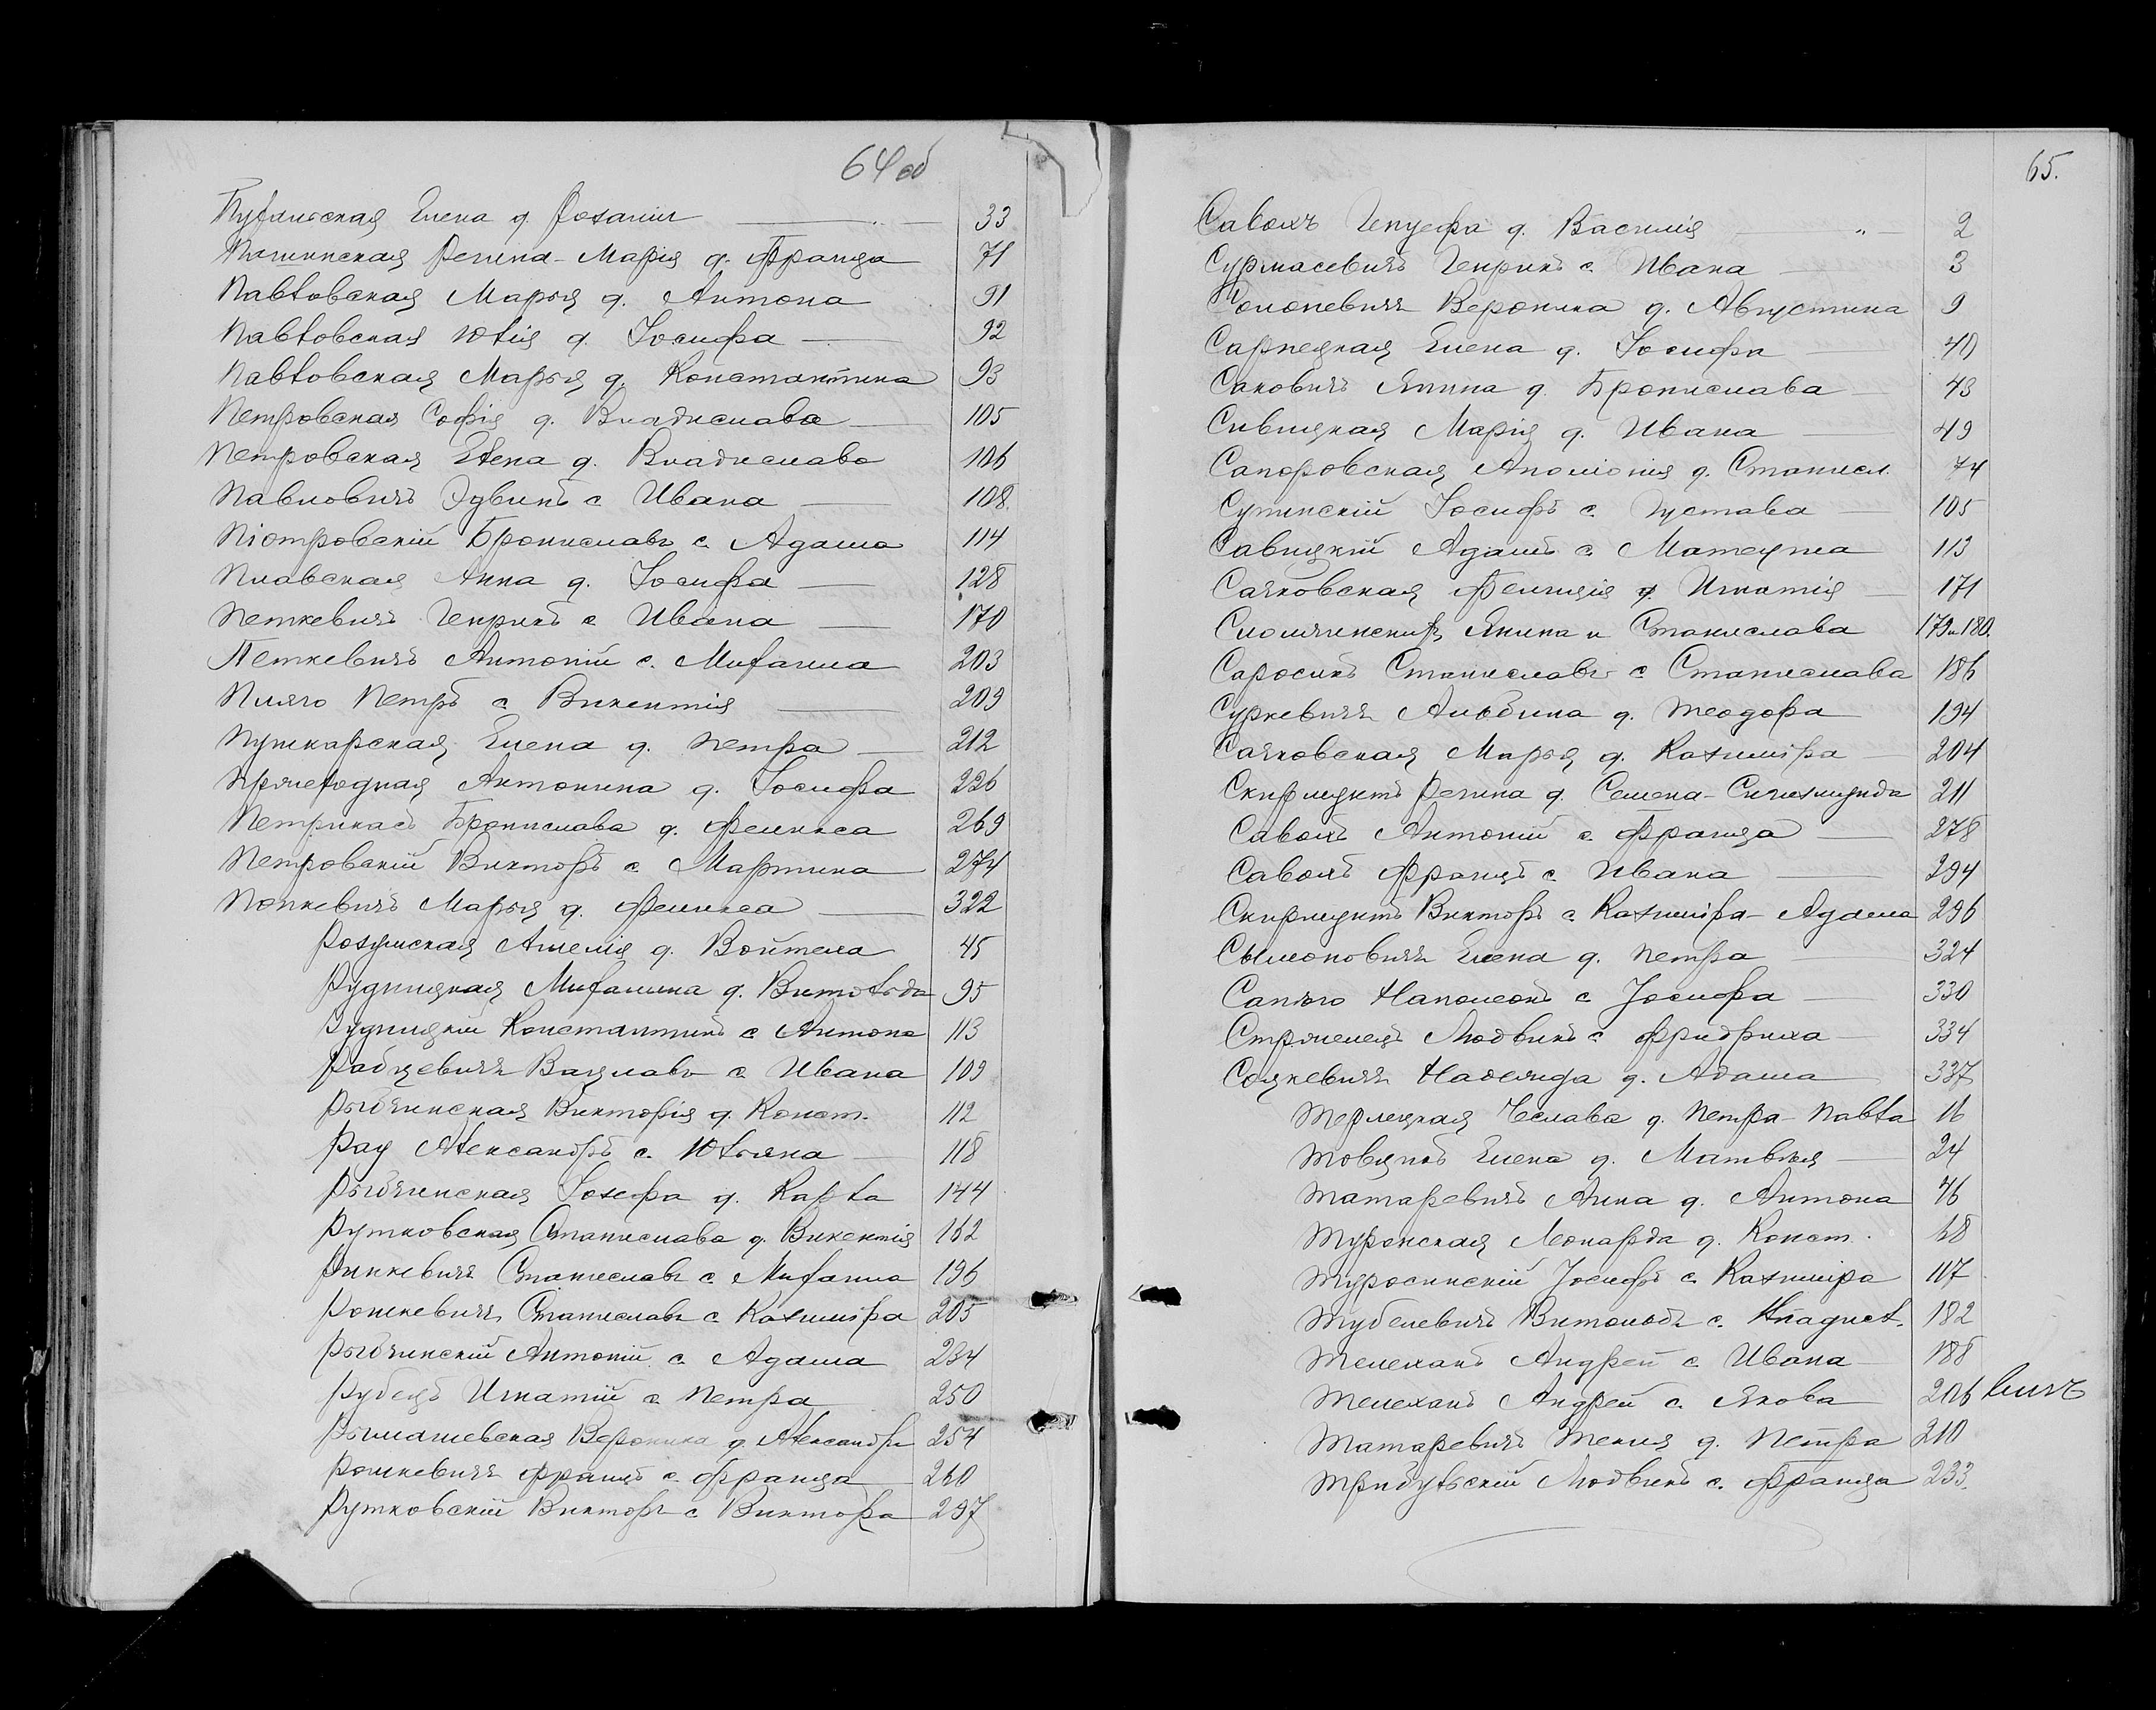 64 об
Пухальская Елена д. Розалии 33
Пашинская Регина-Марія д. Франца 71
Павловская Марья д. Антона 91
Павловская Юлія д. Іосифа 92
Павловская Марья д. Константина 93
Петровская Софія д. Владислава 105
Петровская Елена д. Владислава 106
Павловичъ Эдвинъ с. Ивана 108.
Піотровскій Брониславъ с. Адама 114
Плавская Анна д. Іосифа 128
Петкевичъ Генрихъ с. Ивана 170
Петкевичъ Антоній с. Михаила 203
Пляго Петръ с. Викентія 209
Пушкарская Елена д. Петра 212
Антонина д. Іосифа 226
Петрикасъ Бронислава д. Феликса 269
Петровскій Викторъ с. Мартина 274
Попкевичъ Марья д. Феликса 322
Розумская Амелія д. Войтеха 45
Рудницкая Михалина д. Витольда 95
Рудницкій Константинъ с. Антона 113
Рабцевичъ Вацлавъ с. Ивана 109
Рыбчинская Викторія д. Конст. 112
Рау Александръ с. Юльяна 118
Рыбчинская Іозефа д. Карла 144
Рутковская Станислава д. Викентія 162
Ринкевичъ Станиславъ с. Михаила 196
Рошкевичъ Станиславъ с. Казиміра 205
Рыбчинскій Антоній с. Адама 234
Рубецъ Игнатій с. Петра 250
Рымашевская Вероника д. Александра 254
Рошкевичъ Францъ с. Франца 260
Рутковскій Викторъ с. Виктора 297
65.
Савохъ Генуефа д. Василія 2
Сурмасевичъ Генрихъ с. Ивана 3
Солоневичъ Вероника д. Августина 9
Сарнецкая Елена д. Іосифа 40
Саковичъ Янина д. Бронислава 43
Сивицкая Марія д. Ивана 49
Сапоровская Аполіонія д. Станисл. 74
Сушинскій Іосифъ с. Густава 105
Савицкій Адамъ с. Матеуша 113
Саковская Фелиція д. Игнатія 171
Янина и Станислава 179 и 180.
Саросикъ Станиславъ с. Станислава 186
Суркевичъ Альбина д. Теодора 194
Саковская Марья д. Казиміра 204
Скирмунтъ Регина д. Семена-Сигизмунда 211
Савохъ Антоній с. Франца 278
Савохъ Францъ с. Ивана 294
Скирмунтъ Викторъ с. Казиміра-Адама 296
Сымоновичъ Елена д. Петра 324
Сапяго Наполеонъ с. Іосифа 330
Стрженецъ Людвикъ с. Фридриха 334
Соцкевичъ Надежда д. Адама 337
Терлецкая Чеслава д. Петра-Павла 16
Товцикъ Елена д. Матвѣя 24
Татаревичъ Анна д. Антона 46
Туронская Леонарда д. Конст. 48
Туросинскій Іосифъ с. Казиміра 117
Тубелевичъ Витольдъ с. 182
Телеханъ Андрей с. Ивана 188
Телеханъ Андрей с. Якова 206
Татаревичъ Текля д. Петра 210
Трибульскій Людвикъ с. Франца 233.